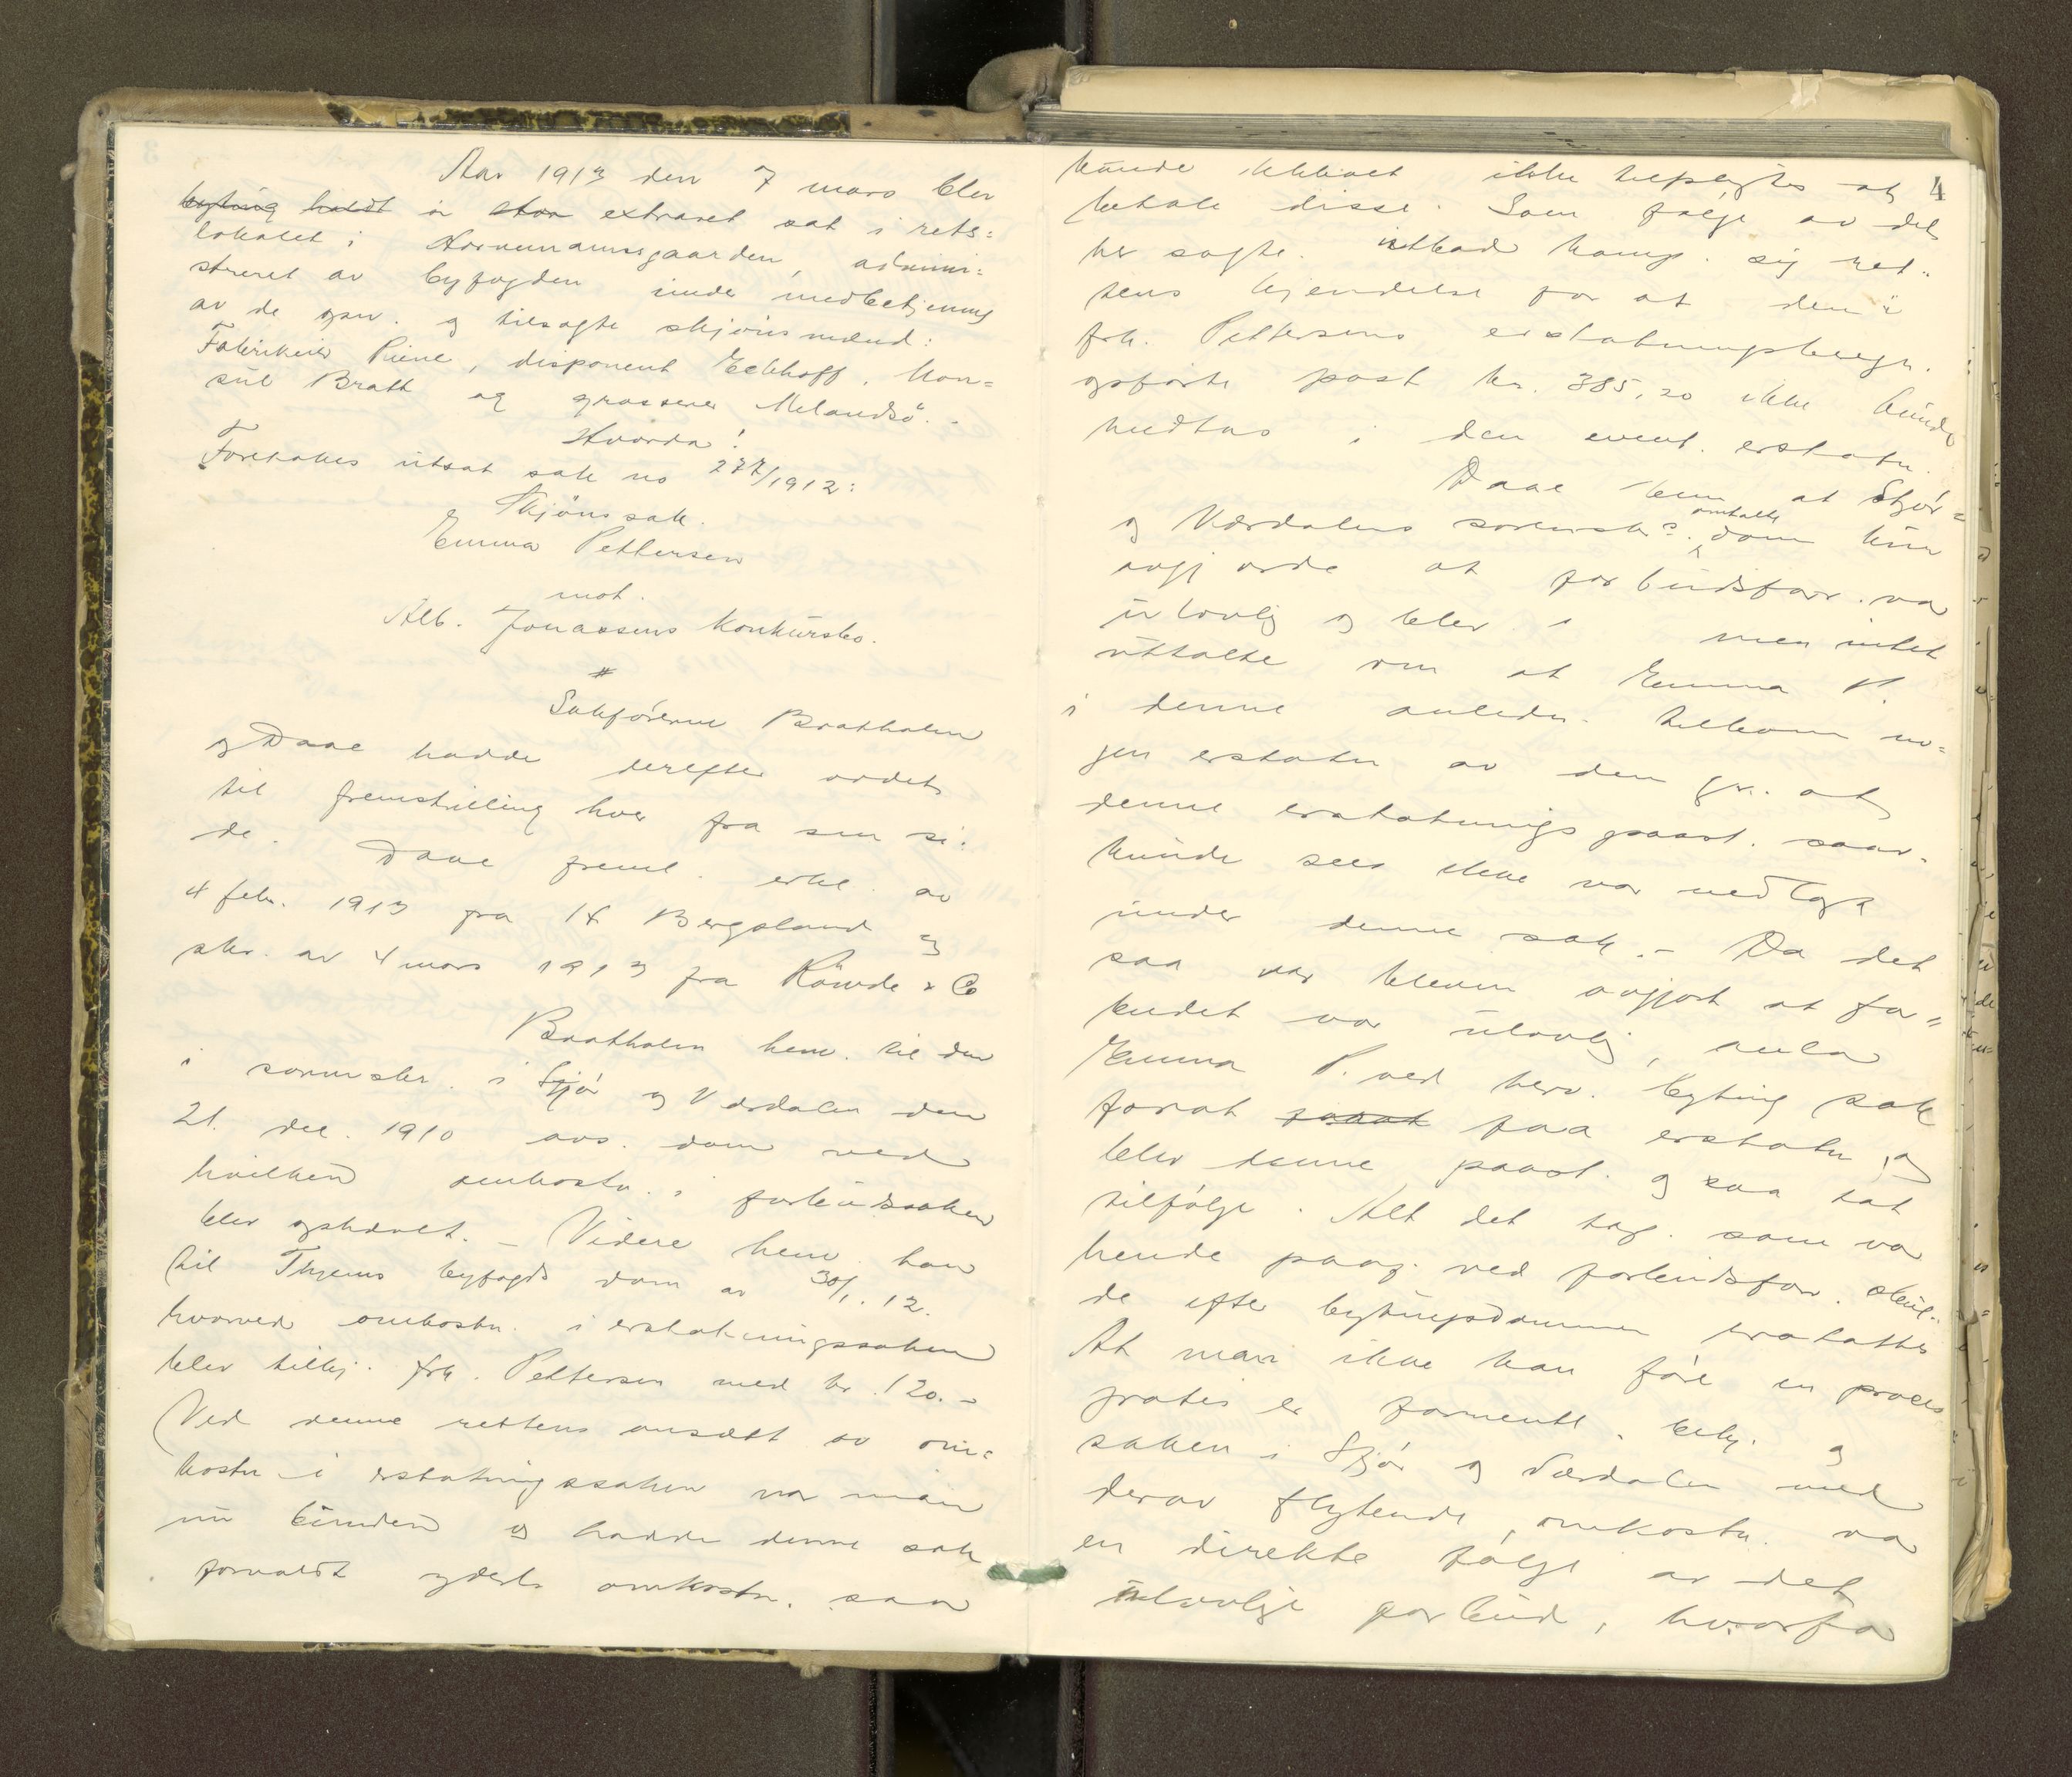 Aar 1913 den 7 mars blev
byting holdt en extraret sat i rets=
lokalet i Hornemansgaarden, admini=
streret av byfogden under medbetjening
av de opn. og tilsagte skjönsmænd:
Fabrikeier Piene, disponent Eckhoff, kon=
sul Bratt og grosserer Melandsö. -
Hvorda!
Foretokes utsat sak no 277/1912:
Skjönssak.
Emma Pettersen
mot.
Alb. Jonassens konkursbo.
#
Sakförerne Bratholm
og Daae hadde derefter ordet
til fremstilling hver fra sin si=
de. Daae freml. erkl. av
4 febr. 1913 fra Bergsland og
skr. av 4 mars 1913 fra & Co
Bratholm henv. til den
i sorenskr. i Stjör og Værdalen den
21. dec. 1910 avs. dom ved
hvilken omkostn. i forbudssaken
blev ophævet. - Videre henv. han
til Thjems byfogds dom av 30/1. 12.
hvorved omkostn. i erstatningssaken
blev tilkj. frk. Pettersen med kr. 120. -
Ved denne rettens ansætt av om=
kostn i erstatningssaken var man
nu bunden og hadde denne sak
forvoldt yderl. omkostn. saa
4
kunde ikke tilpligtes at
betale disse. Som følge av det
her sagte utbad komp. sig ret=
tens kjendelse for at den i
frk. Pettersens erstatningsberegn.
opförte post kr. 385,20 ikke kunde
medtas i den event. erstatn.
Daae bem at Stjör=
og Værdalens sorenskr. omtalte dom kun
avgjorde at forbudsforr. var
ulovlig og blev men intet
uttalte om at Emma P
i denne anledn. tilkom no=
gen erstatn av den gr. at
denne erstatningspaast. saa-
kunde sees ikke var nedlagt
under denne sak. - Da det
saa var bleven avgjort at for=
budet var ulovlig, anla
Emma P. ved herv. byting sak
forat faa erstatn, og
blev denne paast. ogsaa tat
tilfølge. Alt det tap som var
hende paaf. ved forbudsforr. skul=
de efter bytingsdommen erstattes
At man ikke kan före en proces
gratis er formentl. bekj. og
saken i Stjör og Værdalen med
derav flytende omkostn. var
en direkte følge av det
ulovlige forbud, hvorfor